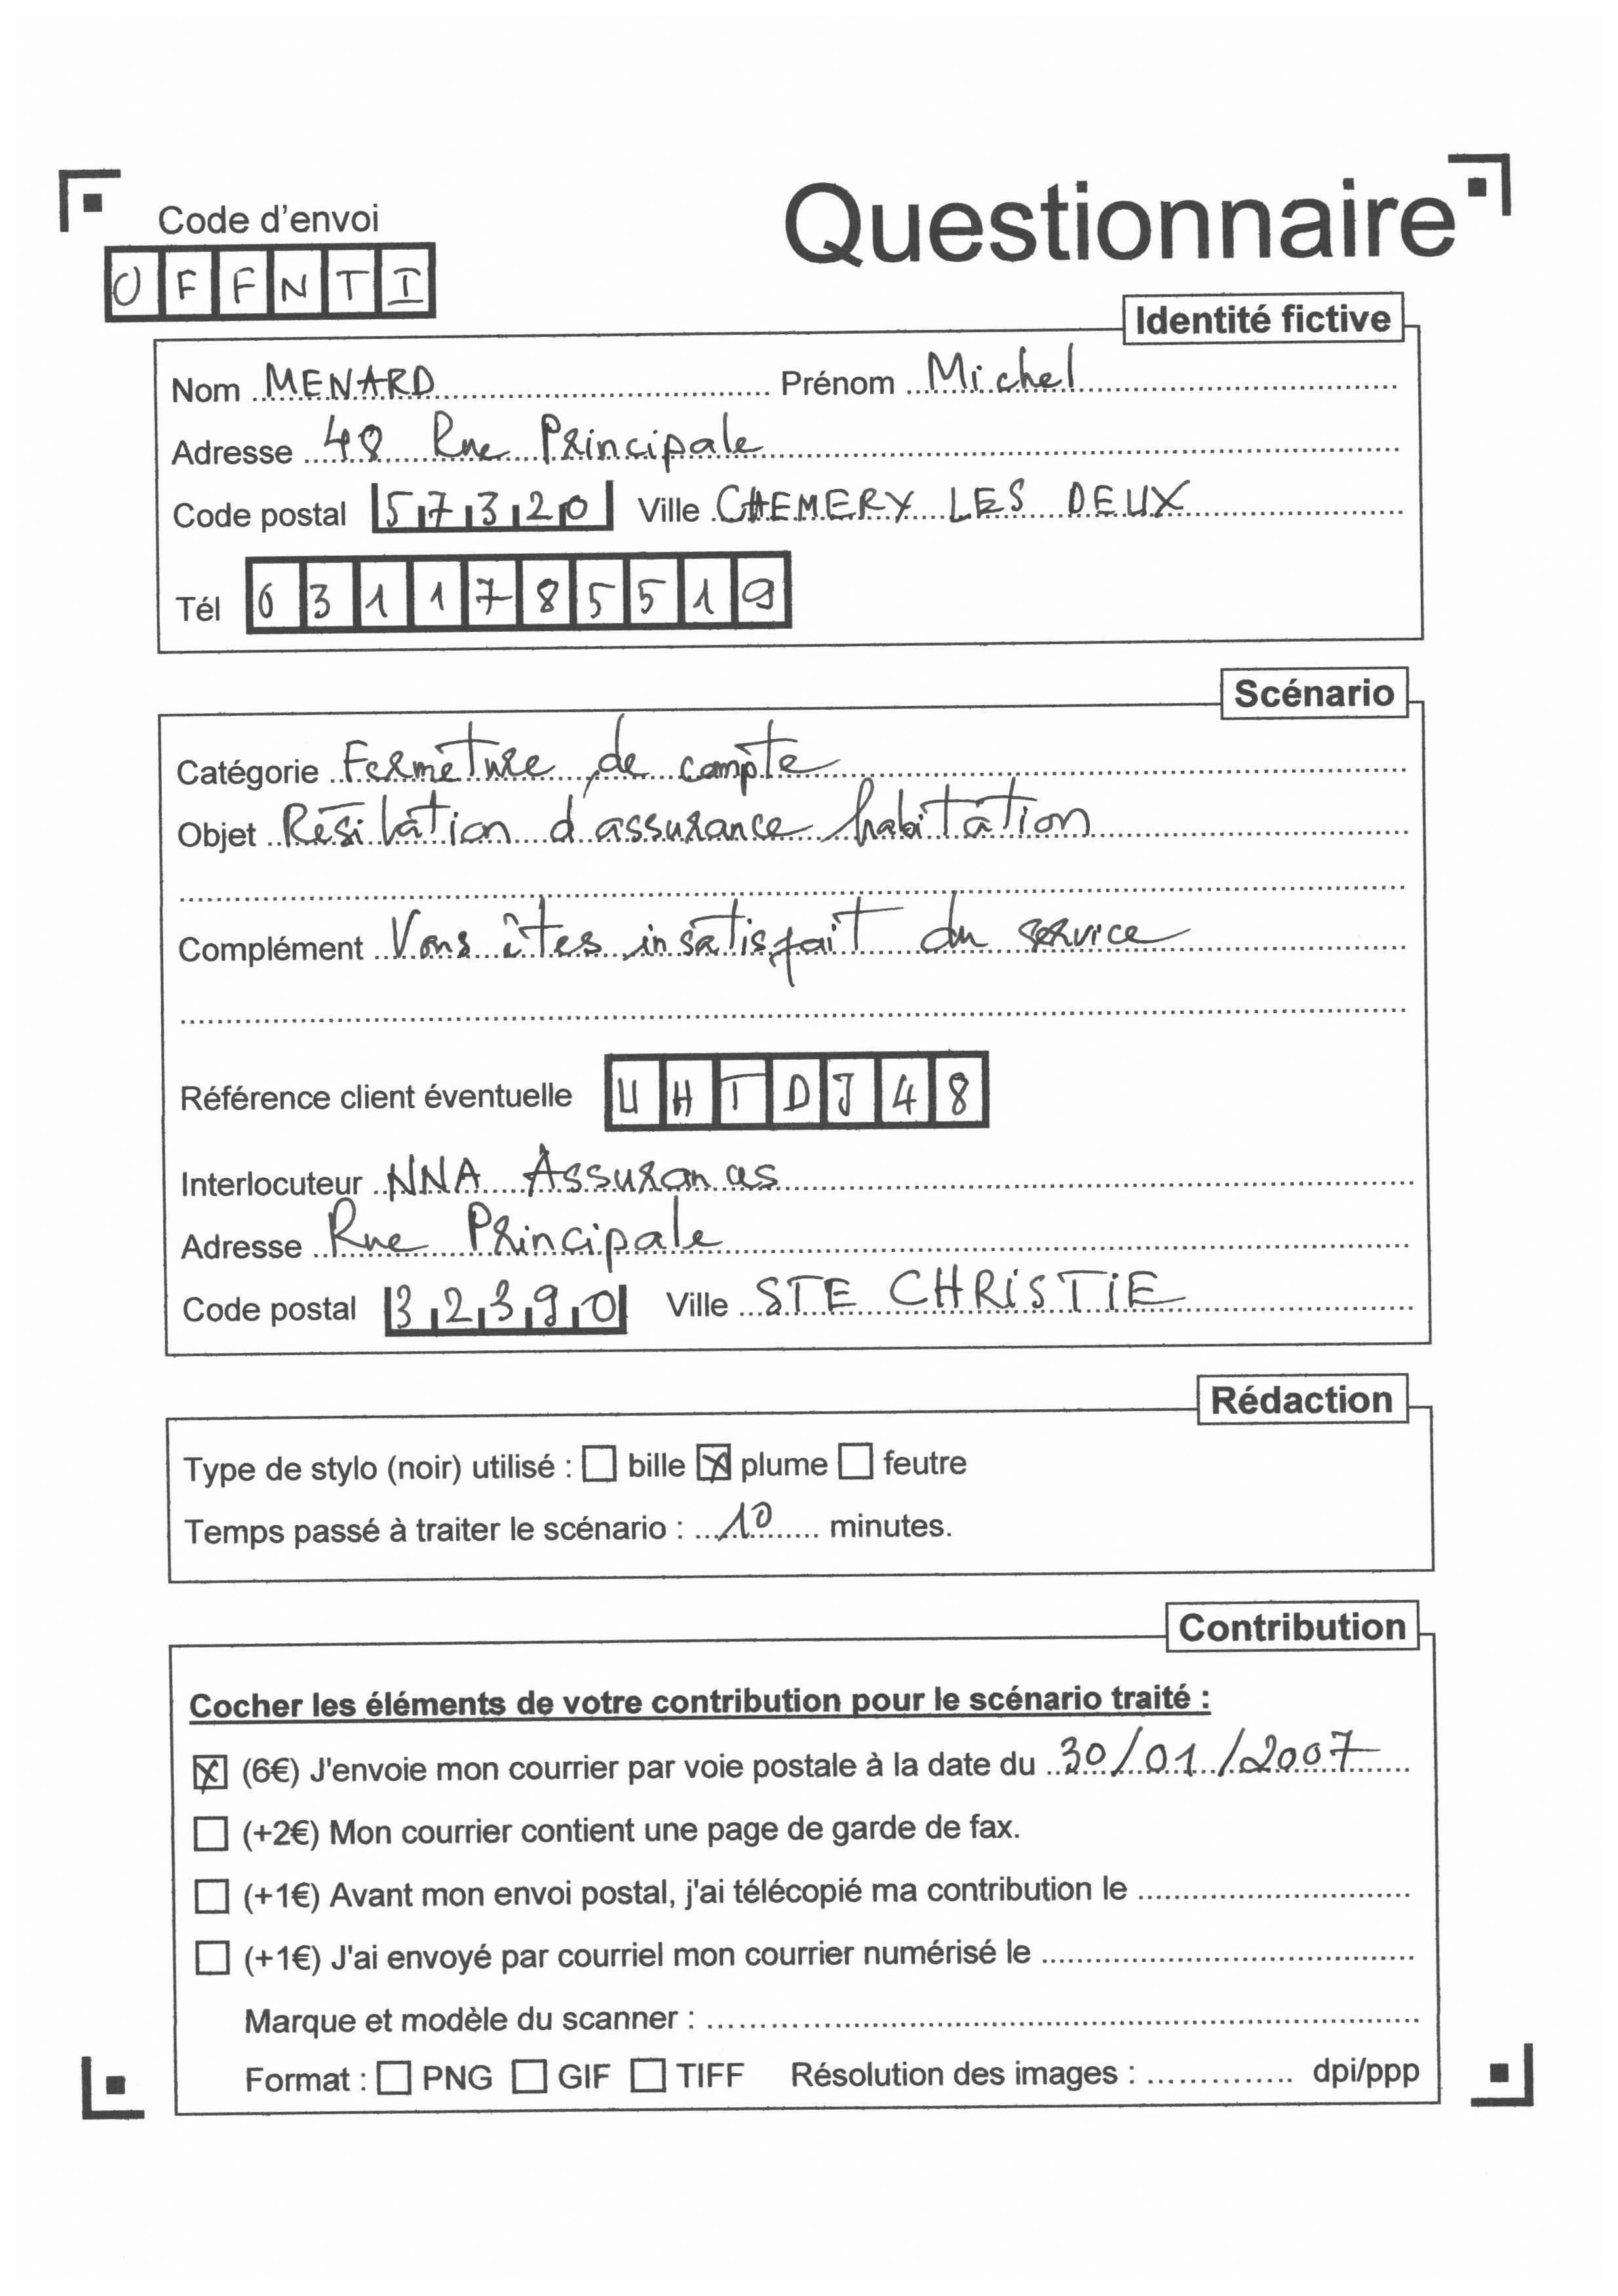 Code d'envoi
Questionnaire
O F F N T I
Identité fictive
Nom MENARD Prénom Michel
Adresse 48 Rue Principale
Code postal 57320 Ville CHEMERY LES DEUX
Tél 0311785519
Scénario
Catégorie Fermeture de compte
Objet Résilation d'assurance habitation
Complément Vous êtes insatisfait du service
Référence client éventuelle UHTDJ48
Interlocuteur NNA Assurances
Adresse Rue Principale
Code postal 32390 Ville STE CHRISTIE
Rédaction
Type de stylo (noir) utilisé : ☐ bille ☒ plume ☐ feutre
Temps passé à traiter le scénario : 10 minutes.
Contribution
Cocher les éléments de votre contribution pour le scénario traité :
☒ (6€) J'envoie mon courrier par voie postale à la date du 30/01/2007
☐ (+2€) Mon courrier contient une page de garde de fax.
☐ (+1€) Avant mon envoi postal, j'ai télécopié ma contribution le
☐ (+1€) J'ai envoyé par courriel mon courrier numérisé le
Marque et modèle du scanner :
Format : ☐ PNG ☐ GIF ☐ TIFF Résolution des images : dpi/ppp